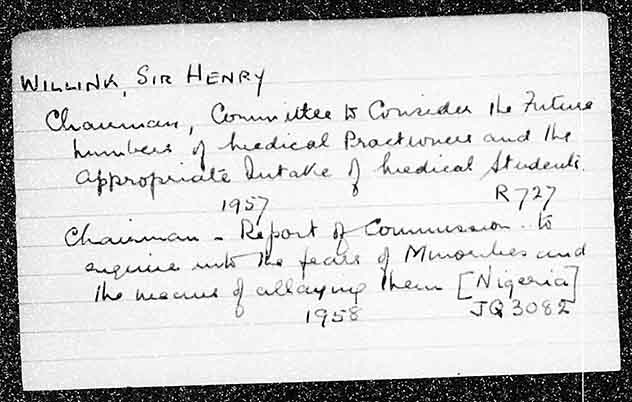 WILLINK, SIR HENRY
Chairman, Committee to Consider the Future
numbers of Medical Practitioners and the
appropriate Intake of Medical Students.
1957 R727
Chairman - Report of Commission to
enquire into the fears of Minorities and
the means of allaying them [Nigeria]
1958 JQ3082